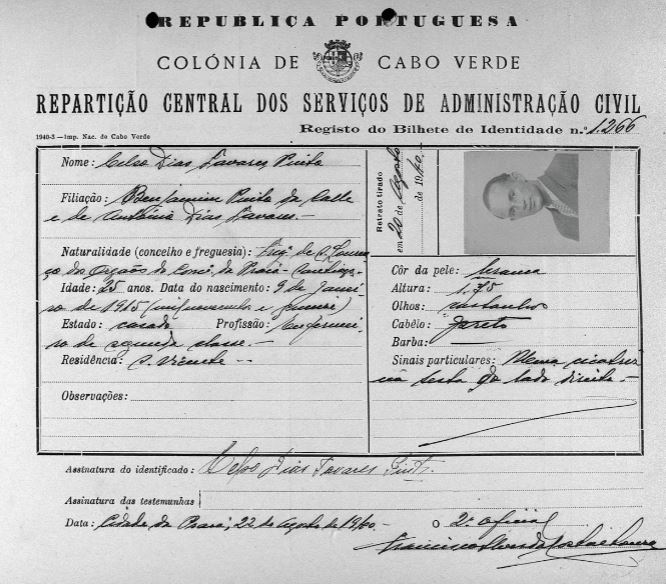 REPUBLICA PORTUGUESA
COLÓNIA DE CABO VERDE
REPARTIÇÃO CENTRAL DOS SERVIÇOS DE ADMINISTRAÇÃO CIVIL
1940-3 — Imp. Nac. de Cabo Verde
Registo do Bilhete de Identidade n.º 1.266
Nome: Celso Dias Tavares Pinto
Filiação: Benjamim Pinto da
e de António Dias Tavares. —
Naturalidade (concelho e freguesia): Freg. de S. Louren-
ço dos Orgãos do Conc. da Praia -
Idade: 25 anos. Data do nascimento: 9 de Janei-
ro de 1915 (mil novecentos e
Estado: casado Profissão: Enfermei-
ro de segunda classe. —
Residência: S. Vicente —
Observações:
Retrato tirado
em 20 de Agosto de 1940.
Côr da pele: branca
Altura: 1,75
Olhos: castanhos
Cabêlo: preto
Barba: —
Sinais particulares: Uma cicatriz
na testa do lado direito. —
Assinatura do identificado: Celso Dias Tavares Pinto
Assinatura das testemunhas
Data: Cidade da Praia, 22 de Agosto de 1940. — O 2.º oficial
Francisco